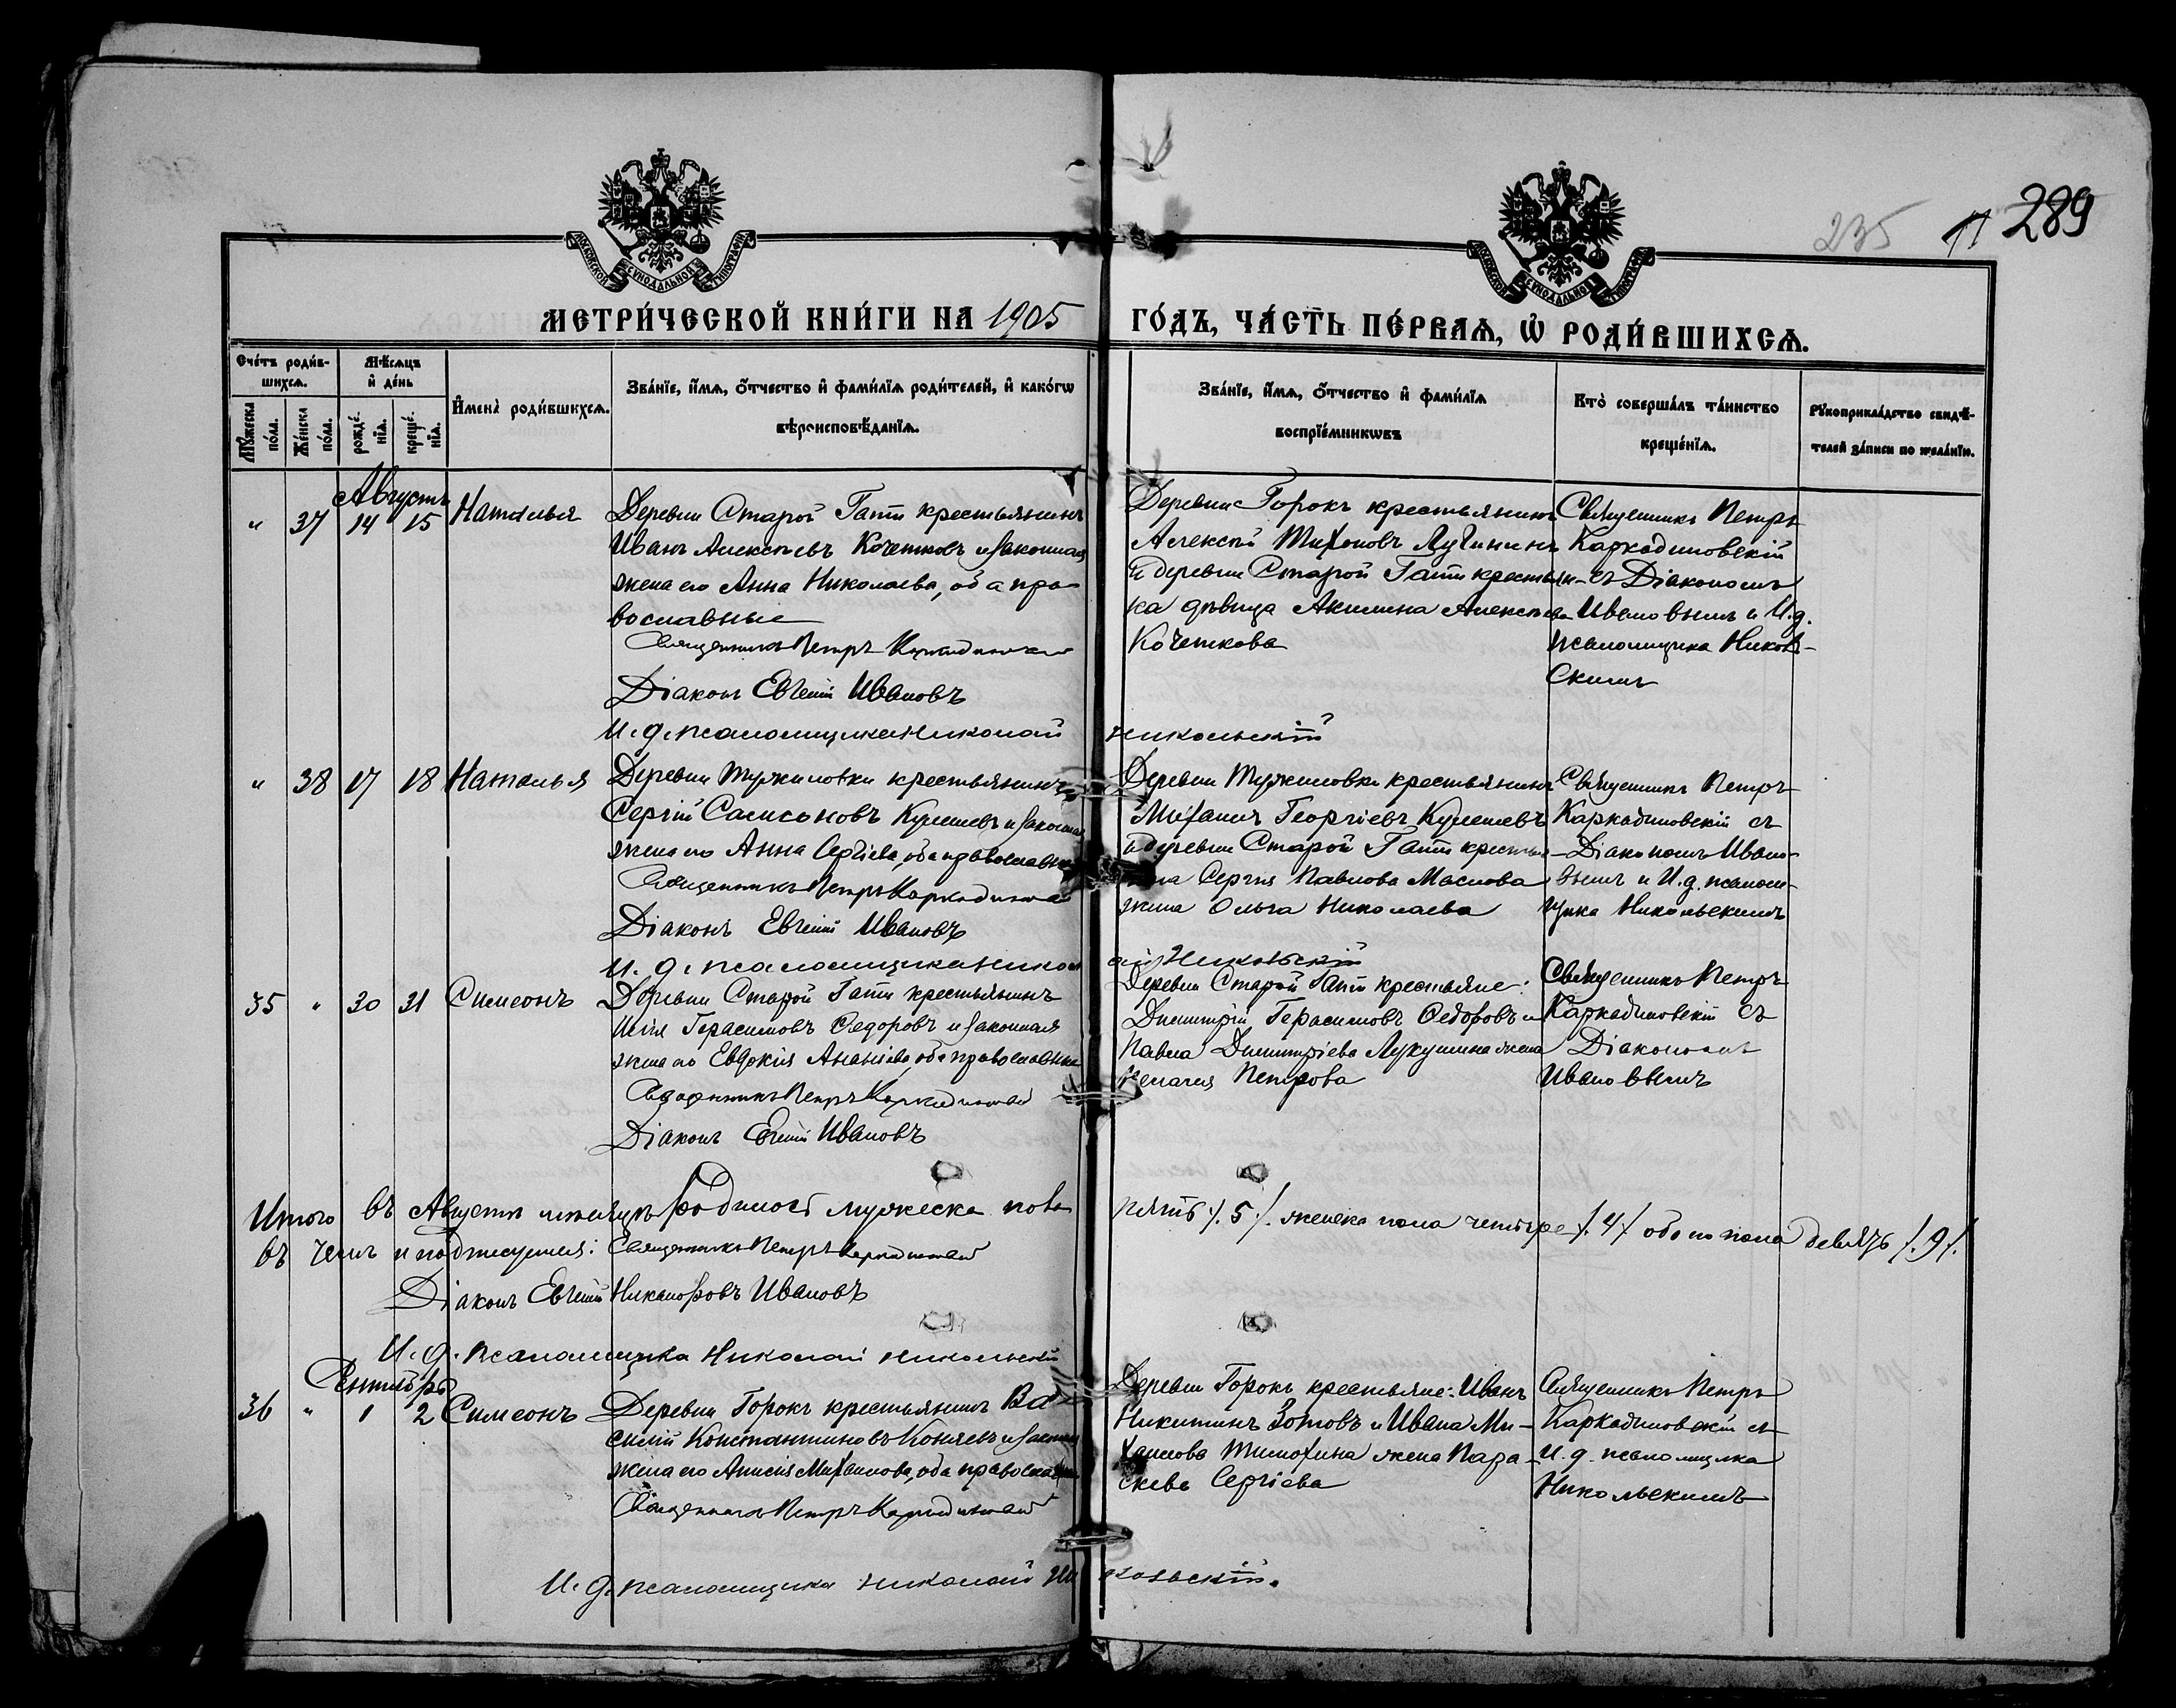 235 11 289
МОСКОВСКОЙ СУНОДАЛЬНОЙ ТИПОГРАФІИ
МОСКОВСКОЙ СУНОДАЛЬНОЙ ТИПОГРАФІИ
МЕТРИ́ЧЕСКОЙ КНИ́ГИ НА 1905
ГО́ДЪ, ЧА́СТЬ ПЕ́РВАѦ, Ѡ҆ РОДИ́ВШИХСѦ.
Сче́тъ роди́в-
шихсѧ.
Мѹ́жеска
по́ла.
Же́нска
по́ла.
Мѣ́сѧцъ
и҆ де́нь
рожде́-
нїѧ.
креще́-
нїѧ.
И҆мена̀ роди́вшихсѧ.
Зва́нїе, и҆́мѧ, ѻ҆́тчество и҆ фами́лїѧ роди́телей, и҆ како́гѡ
вѣроисповѣ́данїѧ.
Зва́нїе, и҆́мѧ, ѻ҆́тчество и҆ фами́лїѧ
воспрїе́мникѡвъ
Кто̀ соверша́лъ та́инство
креще́нїѧ.
Рꙋкоприкла́дство свидѣ́-
телей за́писи по жела́нїю.
Августъ
" 37 14 15 Наталья
Деревни Старой Гати крестьянинъ
Иванъ Алексѣевъ Кочетковъ и законная
жена его Анна Николаева, оба пра-
вославные
Священникъ Петръ
Діаконъ Евгеній Ивановъ
И. д. псаломщика Николай Никольскій
Деревни Горокъ крестьянинъ
Алексѣй Тихоновъ Лучининъ
и деревни Старой Гати крестьян-
ка дѣвица Акилина Алексѣева
Кочеткова
Священникъ Петръ
Каркадиновскій
съ Діакономъ
Ивановымъ и И.д.
псаломщика Николь-
скимъ
" 38 17 18 Наталья
Деревни Тужиловки крестьянинъ
Сергій Самсоновъ Кулешевъ и законная
жена его Анна Сергіева, оба православные
Священникъ Петръ
Діаконъ Евгеній Ивановъ
И. д. псаломщика Николай Никольскій
Деревни Тужиловки крестьянинъ
Михаилъ Георгіевъ Кулешевъ
и деревни Старой Гати крестья-
нина Сергія Павлова Маслова
жена Ольга Николаева
Священникъ Петръ
Каркадиновскій съ
Діакономъ Ивано-
вымъ и И.д. псалом-
щика Никольскимъ
35 " 30 31 Симеонъ
Деревни Старой Гати крестьянинъ
Илія Герасимовъ Ѳедоровъ и законная
жена его Евдокія Ананіева, оба православные
Священникъ Петръ
Діаконъ Евгеній Ивановъ
Деревни Старой Гати крестьяне:
Димитрій Герасимовъ Ѳедоровъ и
Павла Димитріева Лукушина жена
Пелагія Петрова
Священникъ Петръ
Каркадиновскій съ
Діакономъ
Ивановымъ
Итого въ Августѣ мѣсяцѣ родилось мужеска пола пять /. 5 /. женска пола четыре /. 4 /. обоего пола девять /. 9 /.
въ чемъ и подписуемся: Священникъ Петръ
Діаконъ Евгеній Никаноровъ Ивановъ
И. д. псаломщика Николай Никольскій
Сентябрь
36 " 1 2 Симеонъ
Деревни Горокъ крестьянинъ Ва-
силій Константиновъ Коняевъ и законная
жена его Анисія Михаилова, оба православные
Священникъ Петръ
И. д. псаломщика Николай Никольскій.
Деревни Горокъ крестьяне: Иванъ
Никитинъ Зотовъ и Ивана Ми-
хаилова Тимохина жена Пара-
скева Сергіева
Священникъ Петръ
Каркадиновскій съ
И. д. псаломщика
Никольскимъ